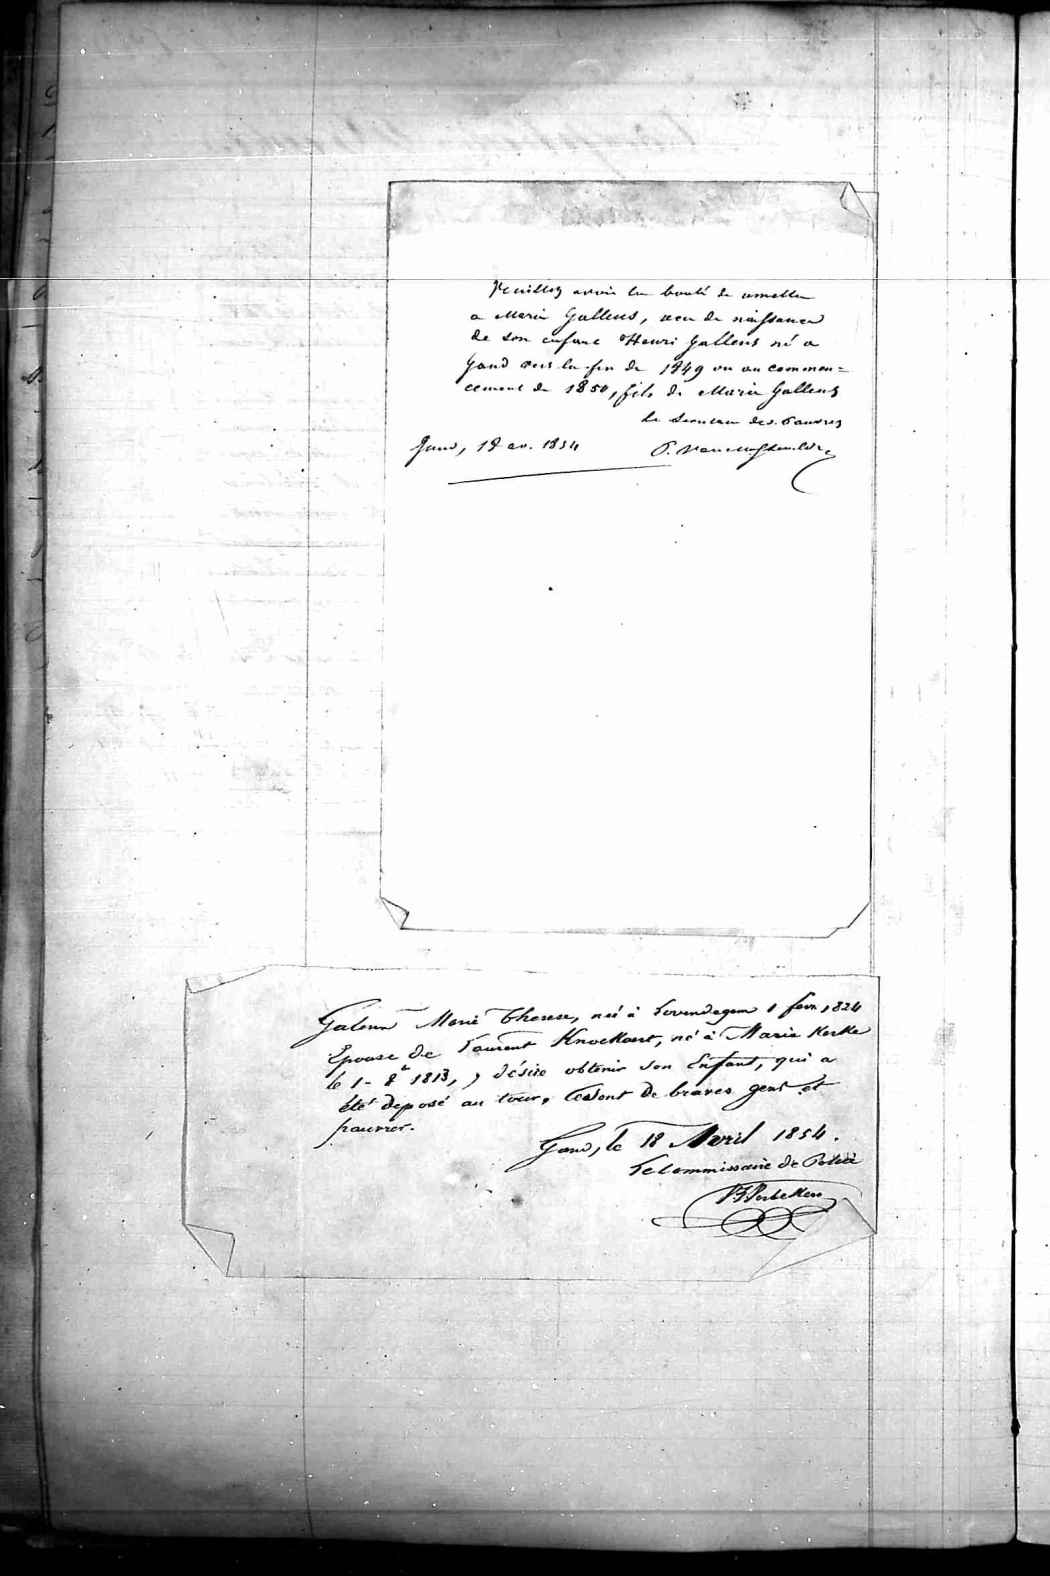 Veuillez avoir la bonté de remettre
a Marie Gallens, acu de naissance
de son enfant Henri Gallens né a
Gand vers la fin de 1849 ou au commen=
cement de 1850, fils de Marie Gallens
Le des Pauvres
Gand, 18 av. 1854
Galenn Marie Therese, née à Lovendegem 1 fevr. 1824
Epouse de Laurent Knockaert, né à Maria Kerke
le 1- 8e 1813, désire obtenir son Enfant, qui a
été deposé au tour, Cesont de braves gens et
pauvres.
Gand, le 18 Avril 1854.
Le Commissaire de Police